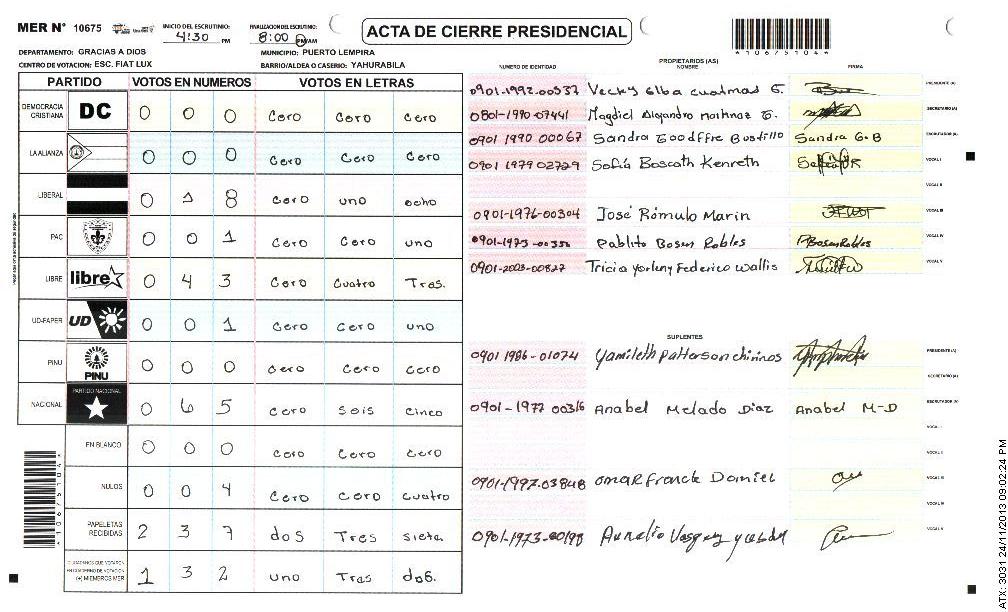 MER N° 10675
INICIO DEL ESCRUTINIO: 4:30 PM
FINALIZACION DEL ESCRUTINIO: 8:00 PM/AM
ACTA DE CIERRE PRESIDENCIAL
*10675104*
DEPARTAMENTO: GRACIAS A DIOS
MUNICIPIO: PUERTO LEMPIRA
CENTRO DE VOTACION: ESC. FIAT LUX
BARRIO/ALDEA O CASERIO: YAHURABILA
PARTIDO VOTOS EN NUMEROS VOTOS EN LETRAS
DEMOCRACIA CRISTIANA DC 0 0 0 cero cero cero
LA ALIANZA 0 0 0 cero cero cero
LIBERAL 0 1 8 cero uno ocho
PAC 0 0 1 cero cero uno
LIBRE libre 0 4 3 cero cuatro Tres.
UD-FAPER UD 0 0 1 cero cero uno
PINU PINU 0 0 0 cero cero cero
NACIONAL PARTIDO NACIONAL 0 6 5 cero seis cinco
EN BLANCO 0 0 0 cero cero cero
NULOS 0 0 4 cero cero cuatro
PAPELETAS RECIBIDAS 2 3 7 dos Tres siete
CIUDADANOS QUE VOTARON EN CUADERNO DE VOTACION (+) MIEMBROS MER 1 3 2 uno Tres dos.
*10675104*
PROPIETARIOS (AS)
NUMERO DE IDENTIDAD NOMBRE FIRMA
0901-1992-00537 Vecky Elba cuatmas G. PRESIDENTE (A)
0801-1990-07441 Magdiel Alejandro martinez G. SECRETARIO (A)
0901 1990 00067 Sandra Goodffre Bustillo Sandra G-B ESCRUTADOR (A)
0901 1979 02729 Sofia Boscath Kenreth VOCAL I
VOCAL II
0901-1976-00304 José Rómulo Marin VOCAL III
0901-1973-00350 Pablito Bosen Robles PBosenRobles VOCAL IV
0901-2003-00827 Tricia yorleny Federico wallis VOCAL V
SUPLENTES
0901 1986-01074 Yamileth Patterson chirinos PRESIDENTE (A)
SECRETARIO (A)
0901-1977 00316 Anabel Melado Diaz Anabel M-D ESCRUTADOR (A)
VOCAL I
VOCAL II
0901-1992-03848 omar Franck Daniel VOCAL III
VOCAL IV
0901-1973-00198 Aurelio Vasquez VOCAL V
ATX: 3031 24/11/2013 09:02:24 PM